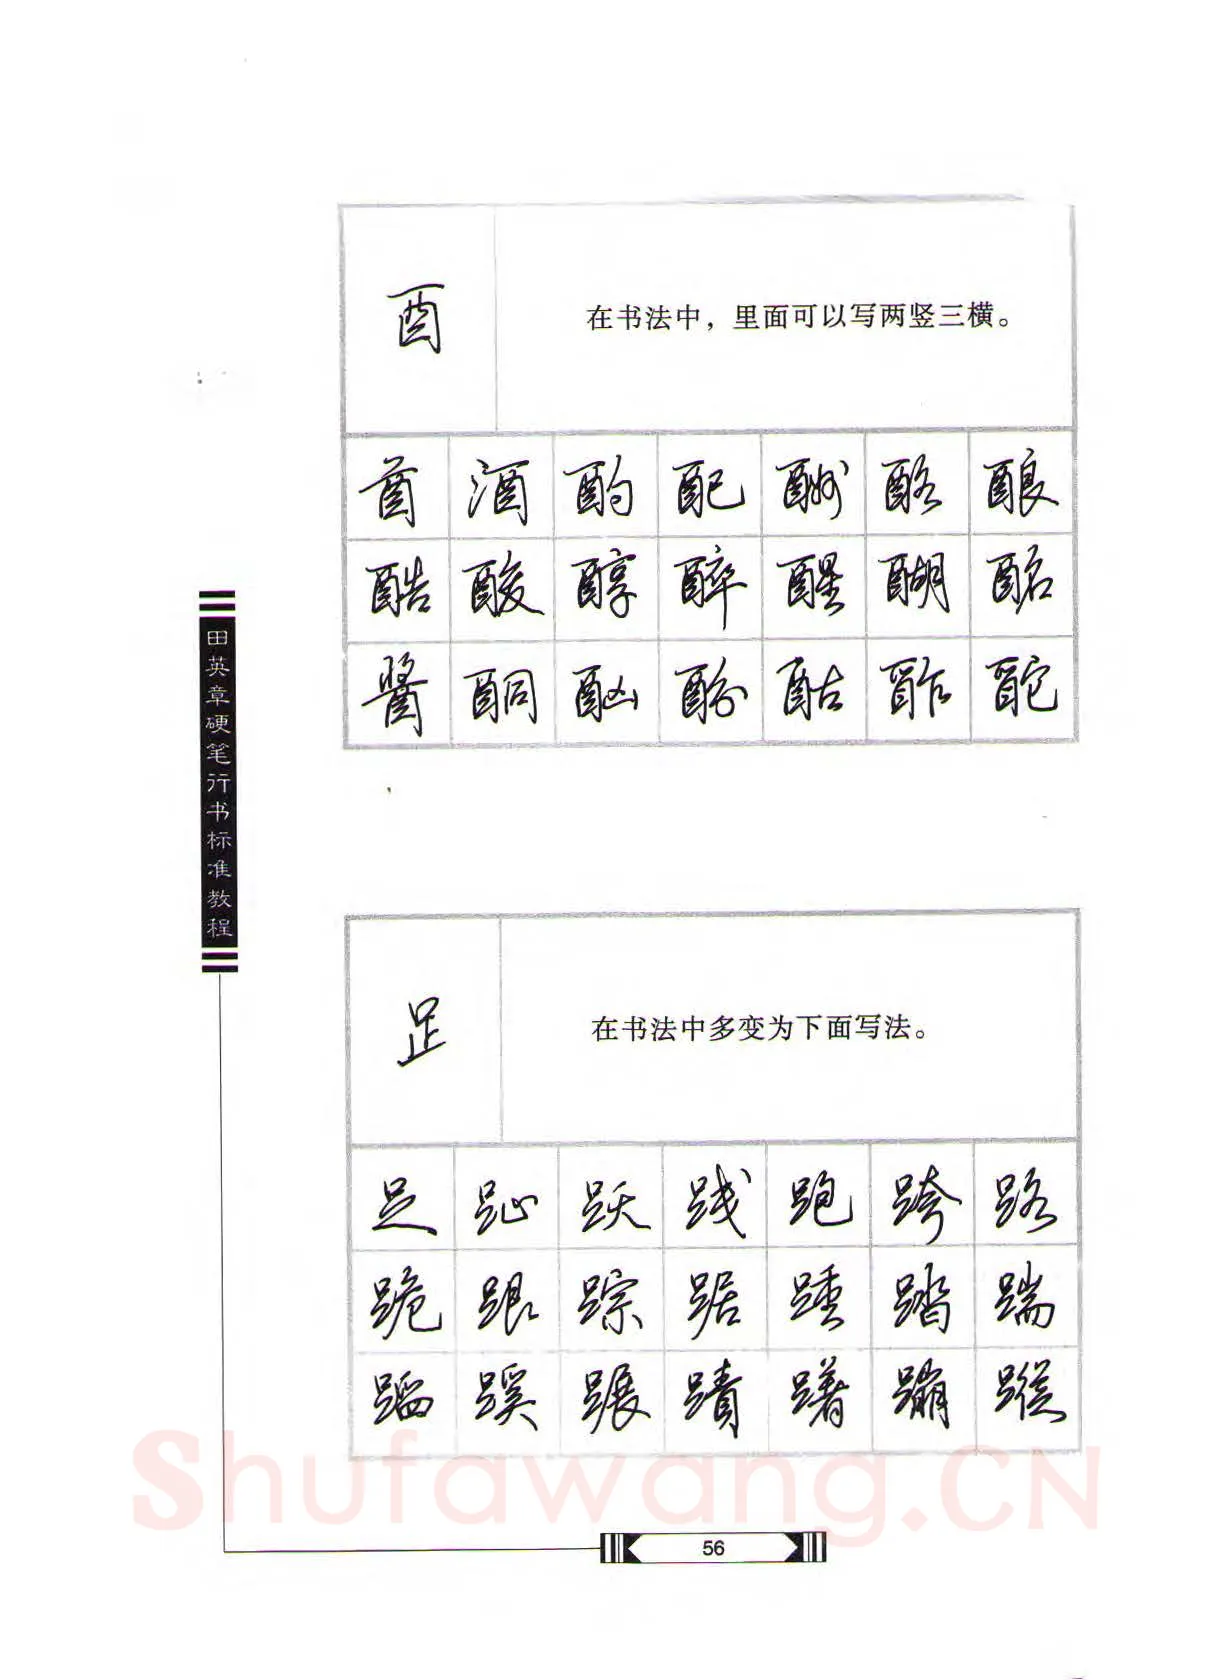 酉
在书法中，里面可以写两竖三横。
酋 酒 酌 配 酬 酪 酿
酷 酸 醇 醉 醒 醐 酩
酱 酮 酗 酚 酤 酢 酡
田英章硬笔行书标准教程
足
在书法中多变为下面写法。
足 趾 跃 践 跑 跨 路
跪 跟 踪 踞 踵 踏 踹
蹊 蹍 蹟 躇 蹦 蹤
Shufawang.CN
56